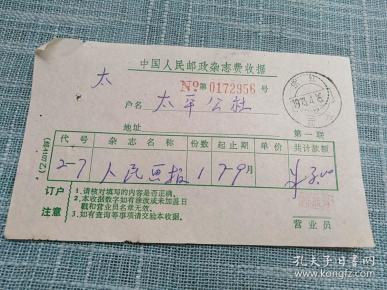 中国人民邮政杂志费收据
太
№第 0172956 号
户名 太平公社
地址
第一联
代号 杂志名称 份数 起止期 单价 共计款额
2-7 人民画报 1 7-9月 ¥3.00
订户注意
1.请核对填写的内容是否正确。
2.本收据数字如有涂改或未加盖日戳和营业员名章无效。
3.如有查询等事项请交验本收据。
营业员
孔夫子旧书网